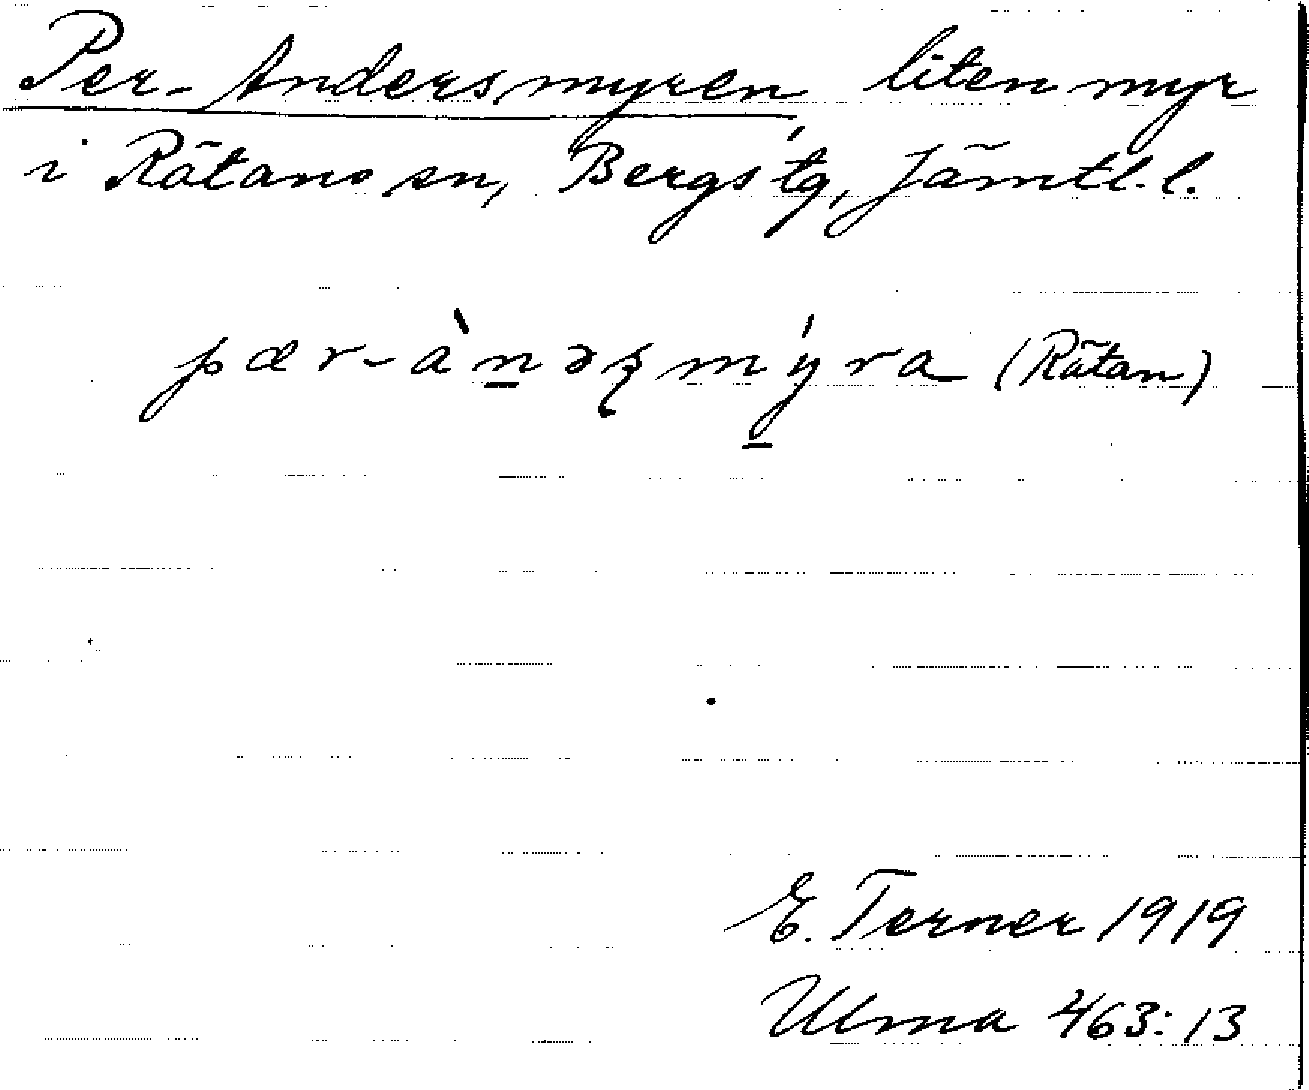 Per-Andersmyren, liten myr
i Rätans sn, Bergs tg, Jämtl. l.
pær-àn̲əʂmý̲ra (Rätan)
E. Terner 1919
Ulma 463:13